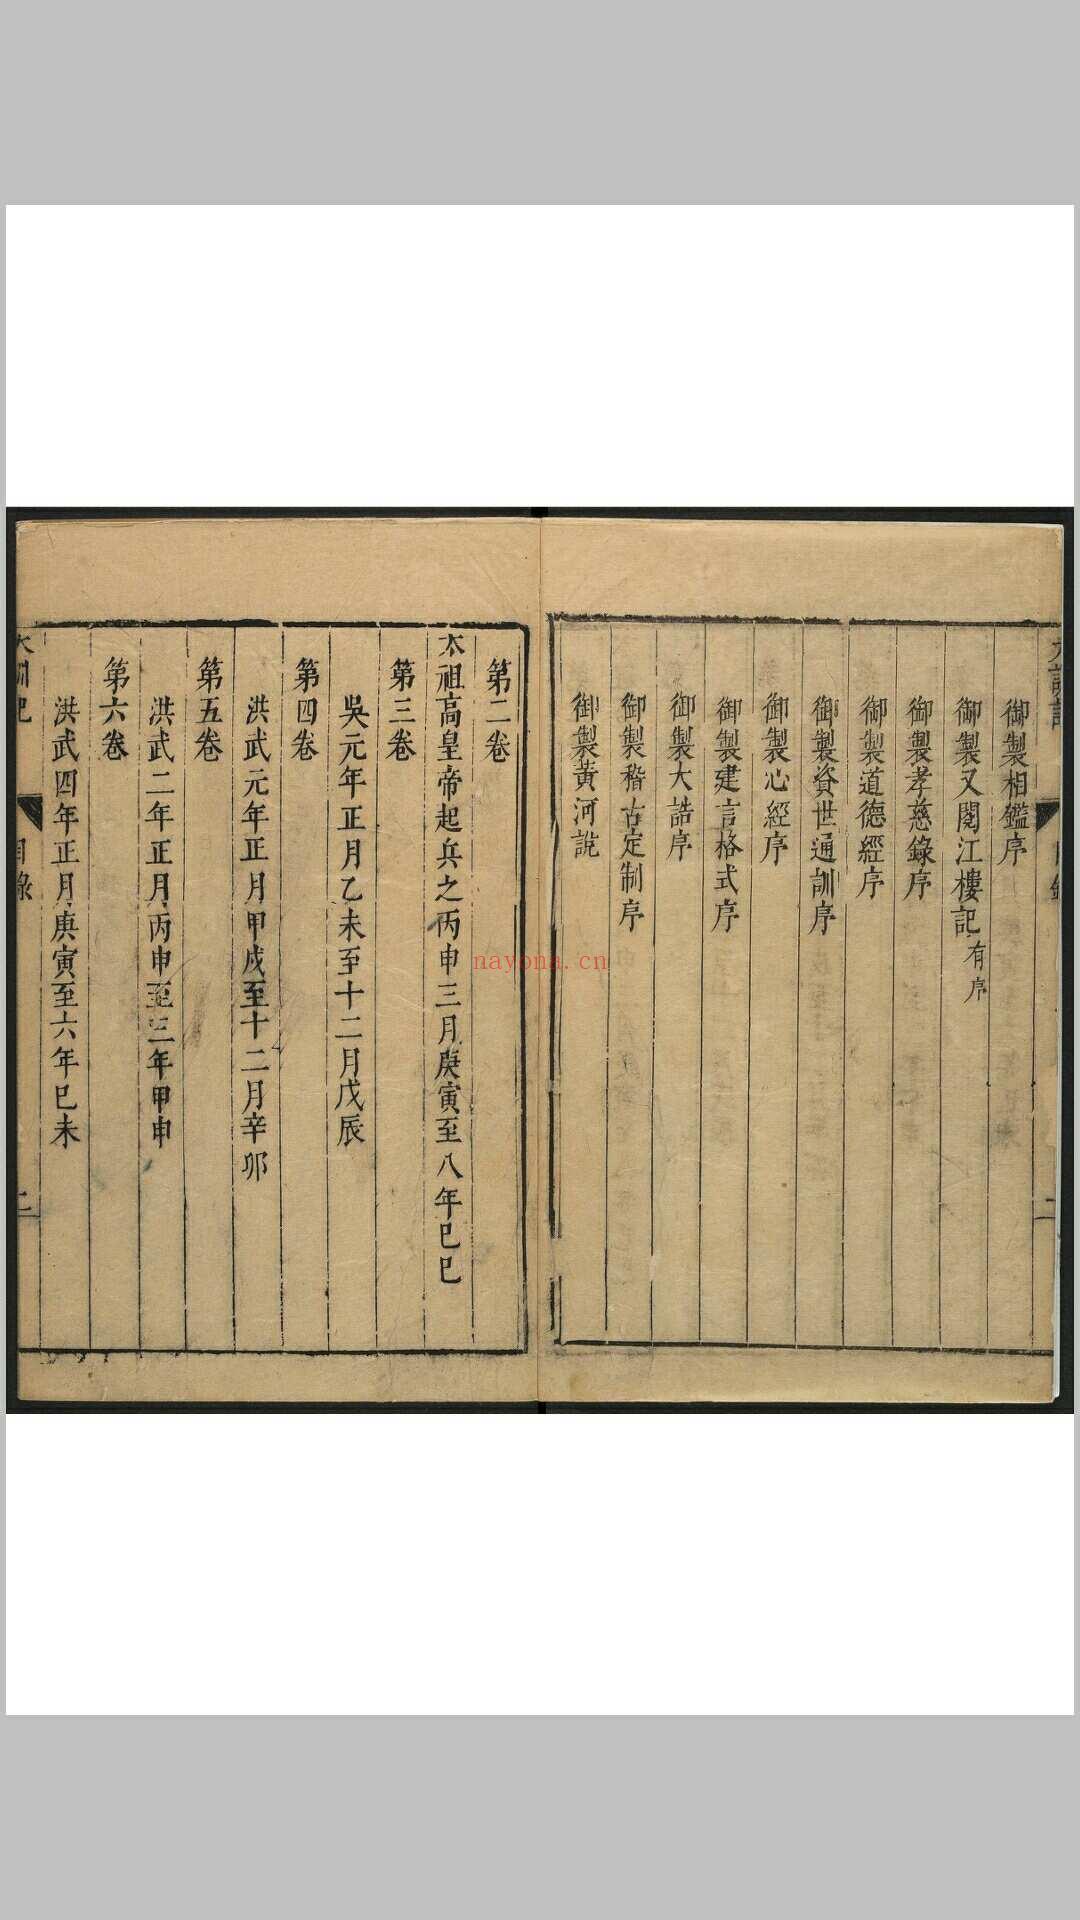 御製相鑑序
御製又閱江樓記有序
御製孝慈錄序
御製道德經序
御製資世通訓序
御製心經序
御製建言格式序
御製大誥序
御製稽古定制序
御製黃河說
第二卷
太祖高皇帝起兵之丙申三月庚寅至八年巳巳
第三卷
吳元年正月乙未至十二月戊辰
第四卷
洪武元年正月甲戌至十二月辛卯
第五卷
洪武二年正月丙申至三年甲申
第六卷
洪武四年正月庚寅至六年巳未
目錄
nayona.cn